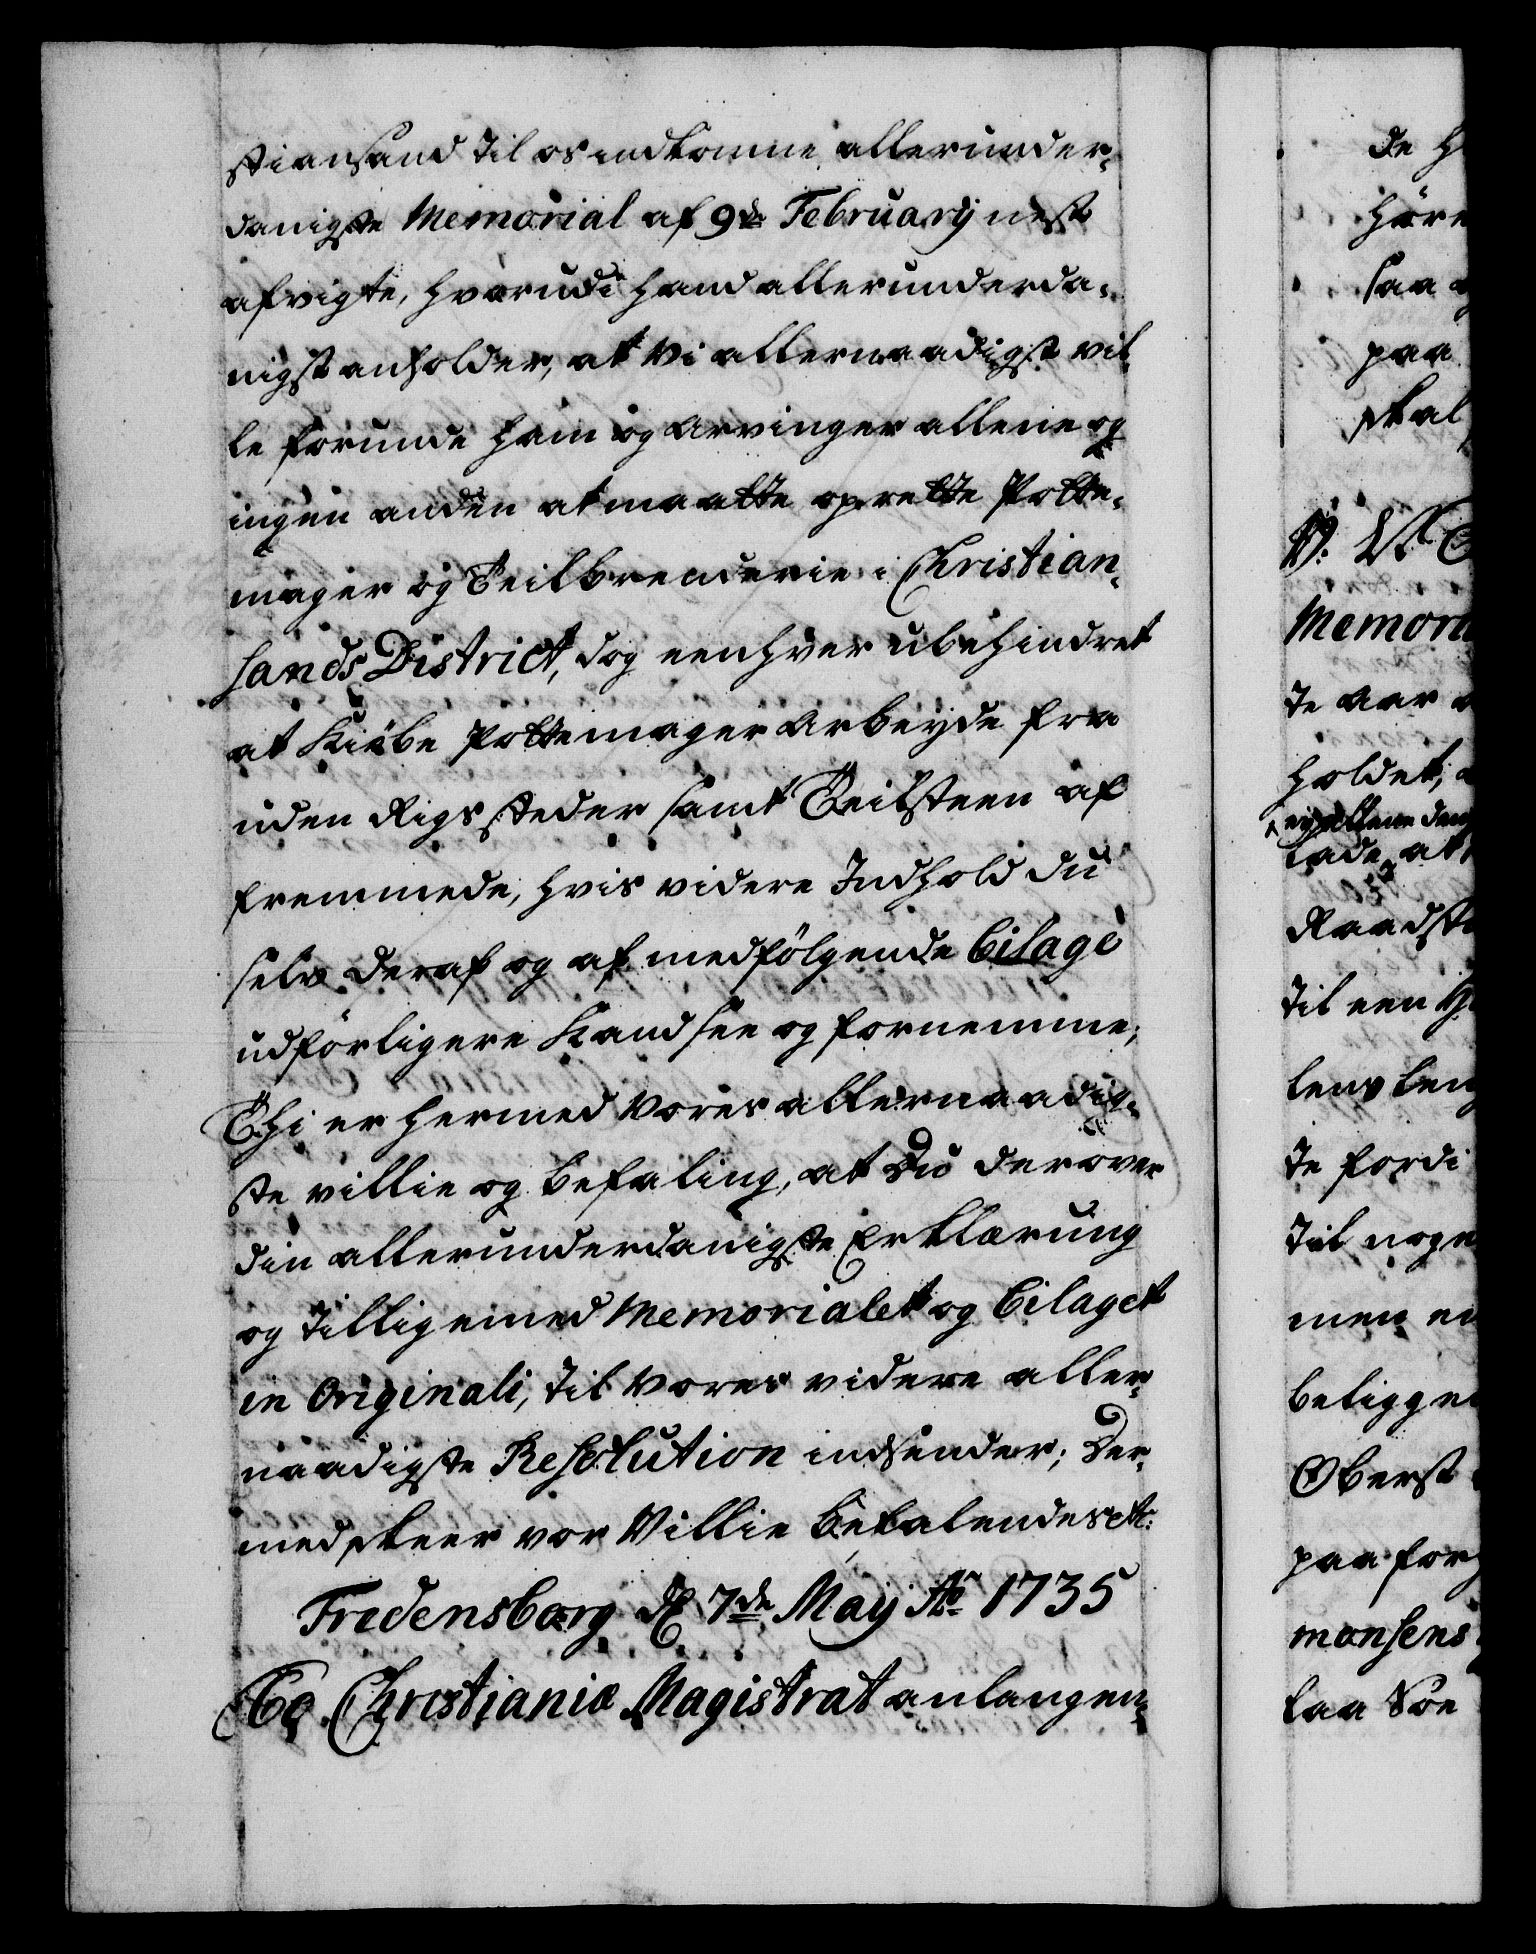 stiansand til os indkomne allerunder-
danigste Memorial af 9de February nest
afvigte, hvorudi hand allerunderda-
nigst anholder, at Vi allernaadigst vil
le forunde ham og arvinger allene og
ingen anden at maatte oprette Potte-
mager og Teilbrenderie i Christian-
sands District, dog eenhver ubehindret
at Kiöbe Pottemager arbeyde fra
uden Rigs steder samt Teilsteen af
fremmede, hvis videre Indhold du
selv deraf og af medfölgende bilage
udförligere Kand see og fornemme;
Thi er hermed Vores allernaadig-
ste villie og befaling, at Du derover
din allerunderdanigste Erklæring
og tilligemed Memorialet og bilaget
in Originali, til Vores videre aller-
naadigste Resolution indsender; Der-
med skeer vor Villie Befalendes etc:
Fredensborg d 7de May Ao 1735
To Christianiæ Magistrat anlangen-
de h
höre
saa
paa
skal
Memora
te aar
holdet,
ey allene den
lade at
Raadst
til een
te fordi
til noge
men en
beligge
Oberst
paa for
monsens
laa Soe